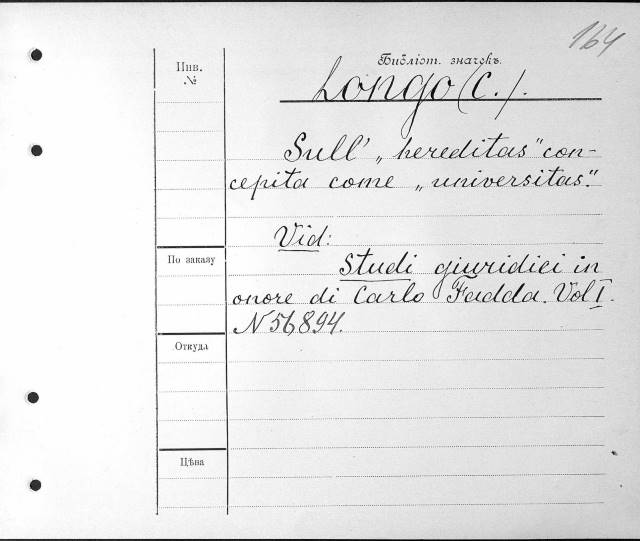 164
Библіот. значекъ.
Longo (C.).
Инв.
№
Sull' „hereditas" con-
cepita come „universitas".
Vid:
По заказу
Studi giuridici in
onore di Carlo Fadda. Vol I.
N 56,894.
Откуда
Цѣна